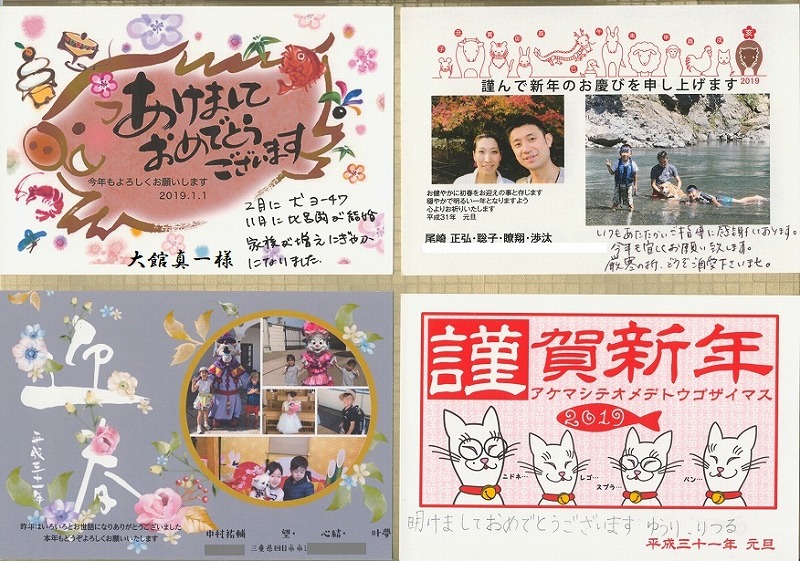 あけまして
おめでとう
ございます
今年もよろしくお願いします
2019.1.1
2月に 犬
11月に が結婚
家族が増えにぎやか
になりました。
大館真一様
子 丑 寅 卯 辰 巳 午 未 申 酉 戌 亥
謹んで新年のお慶びを申し上げます
2019
お健やかに初春をお迎えの事と存じます
穏やかで明るい一年となりますよう
心よりお祈りいたします
平成31年 元旦
尾崎 正弘・聡子・瞭翔・渉汰
いつもあたたかいご指導に感謝しております。
今年も宜しくお願い致します。
厳寒の折、どうぞご自愛下さいませ。
迎春
平成三十一年
昨年はいろいろとお世話になりありがとうございました
本年もどうぞよろしくお願いいたします
中村祐輔 望・ 心結・ 叶夢
三重県四日市市
謹賀新年
アケマシテオメデトウゴザイマス
2019
ニドネ…
レゴ…
スプラ…
パン…
明けましておめでとうございます ゆうり、りつる
平成三十一年 元旦